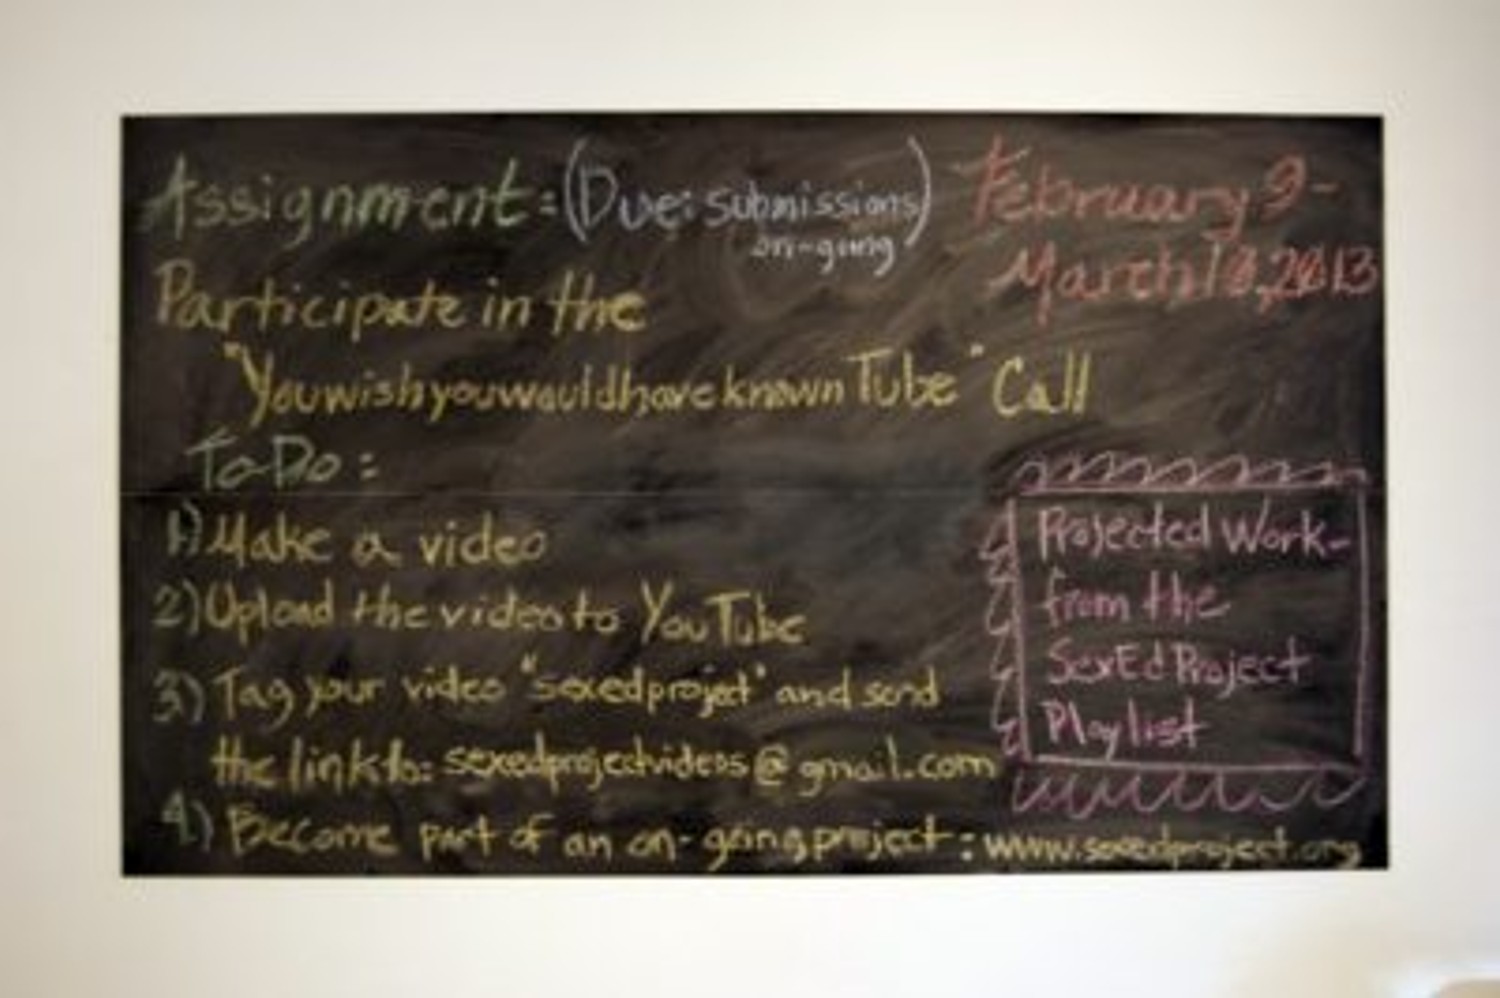 Assignment: (Due: submissions on-going)
February 9-
March 10, 2013
Participate in the
"YouwishyouwouldhaveknownTube" Call
To-Do:
1) Make a video
2) Upload the video to YouTube
3) Tag your video "sexedproject" and send
the link to: sexedprojectvideos@gmail.com
4.) Become part of an on-going project: www.sexedproject.org
Projected Work-
from the
SexEdProject
Playlist